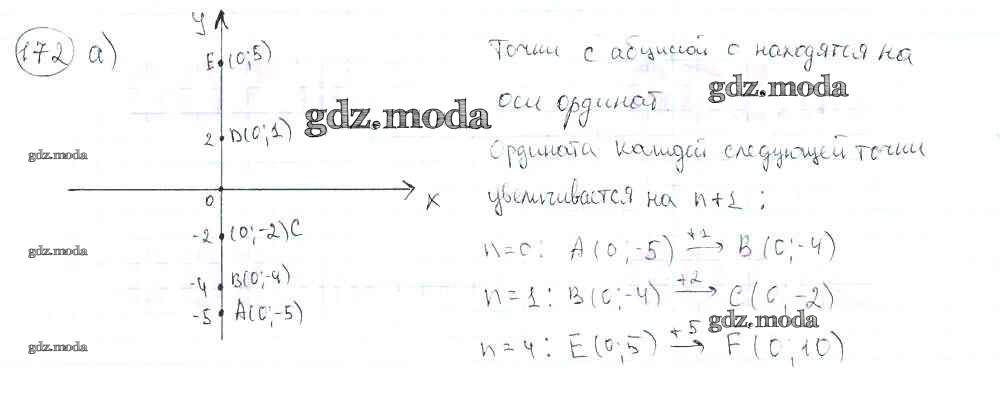 172 а)
y
E (0;5)
2 D(0;1)
0
x
-2 (0;-2)C
-4 B(0;-4)
-5 A(0;-5)
Точки с абциссой 0 находятся на
оси ординат
Ордината каждой следующей точки
увеличивается на n+1;
n=0: A(0;-5) +1→ B(0;-4)
n=1: B(0;-4) +2→ C(0;-2)
n=4: E(0;5) +5→ F(0;10)
gdz.moda
gdz.moda
gdz.moda
gdz.moda
gdz.moda
gdz.moda